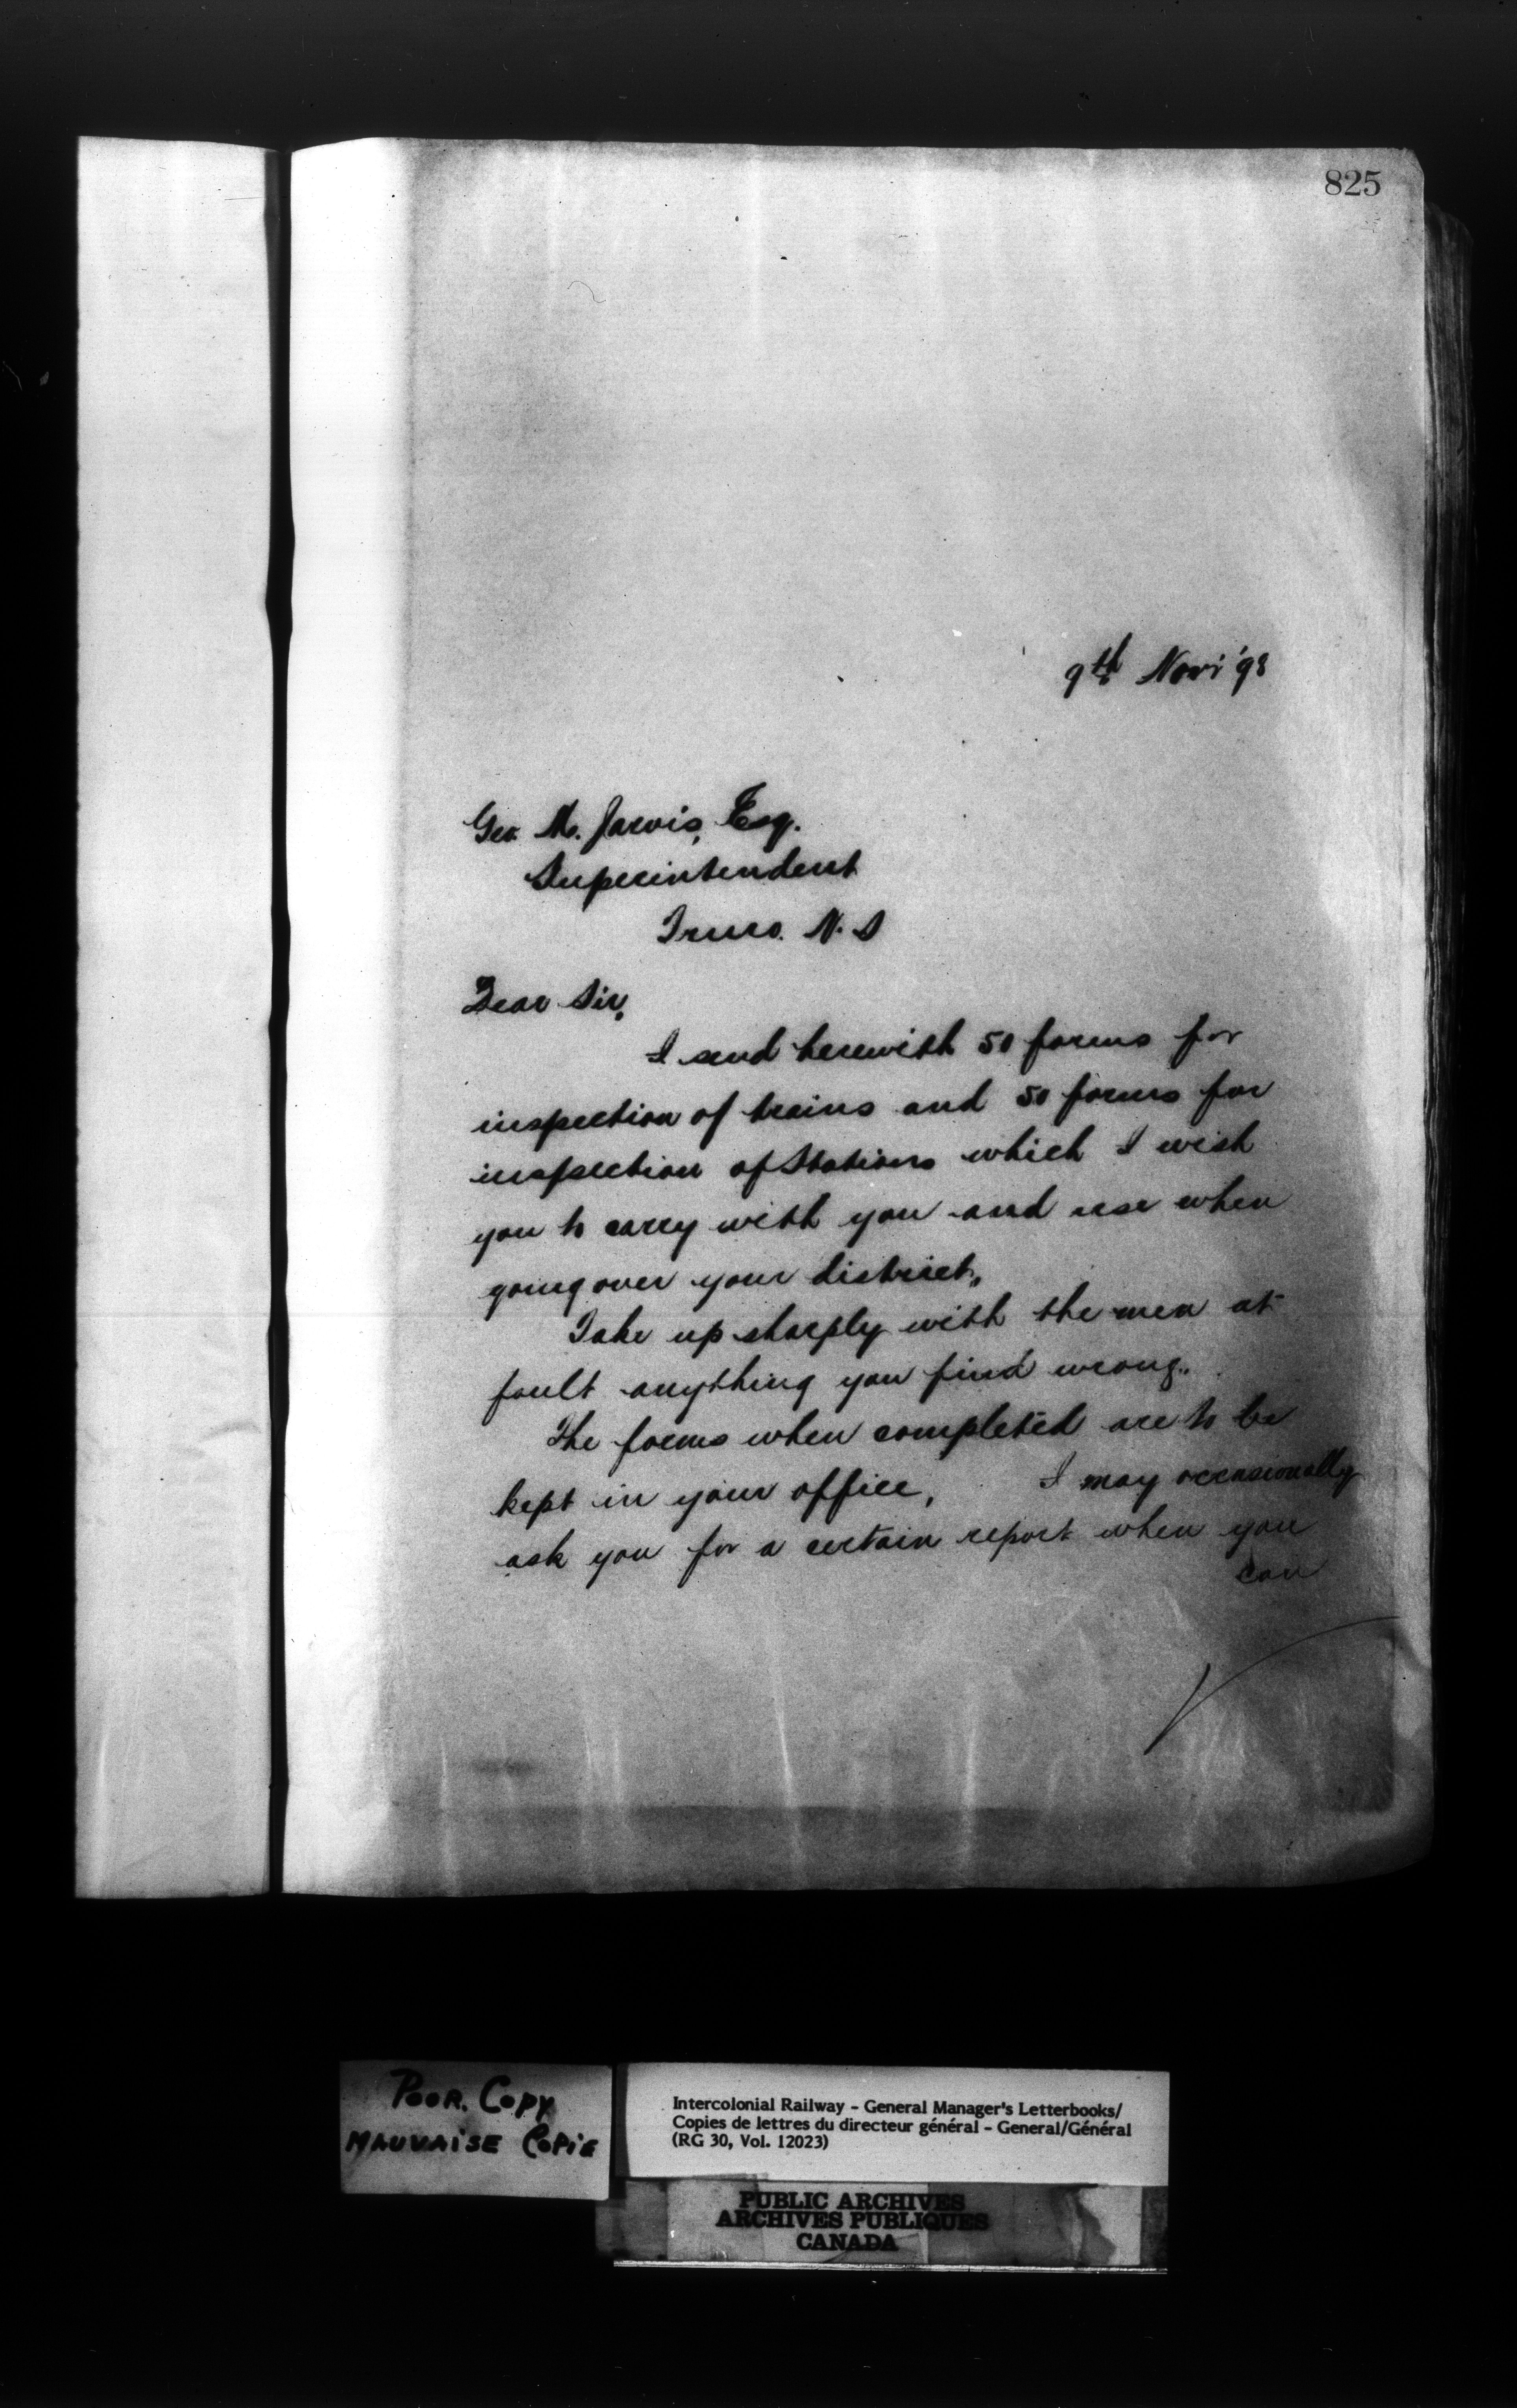 825
9th Nov: '98
Geo. M. Jarvis, Esq.
Superintendent
Truro. N. S
Dear Sir,
I send herewith 50 forms for
inspection of trains and 50 forms for
inspection of Stations which I wish
you to carry with you and use when
going over your district.
Take up sharply with the men at
fault anything you find wrong.
The forms when completed are to be
kept in your office, I may occasionally
ask you for a certain report when you
can
POOR. COPY
MAUVAISE COPIE
Intercolonial Railway - General Manager's Letterbooks/
Copies de lettres du directeur général - General/Général
(RG 30, Vol. 12023)
PUBLIC ARCHIVES
ARCHIVES PUBLIQUES
CANADA